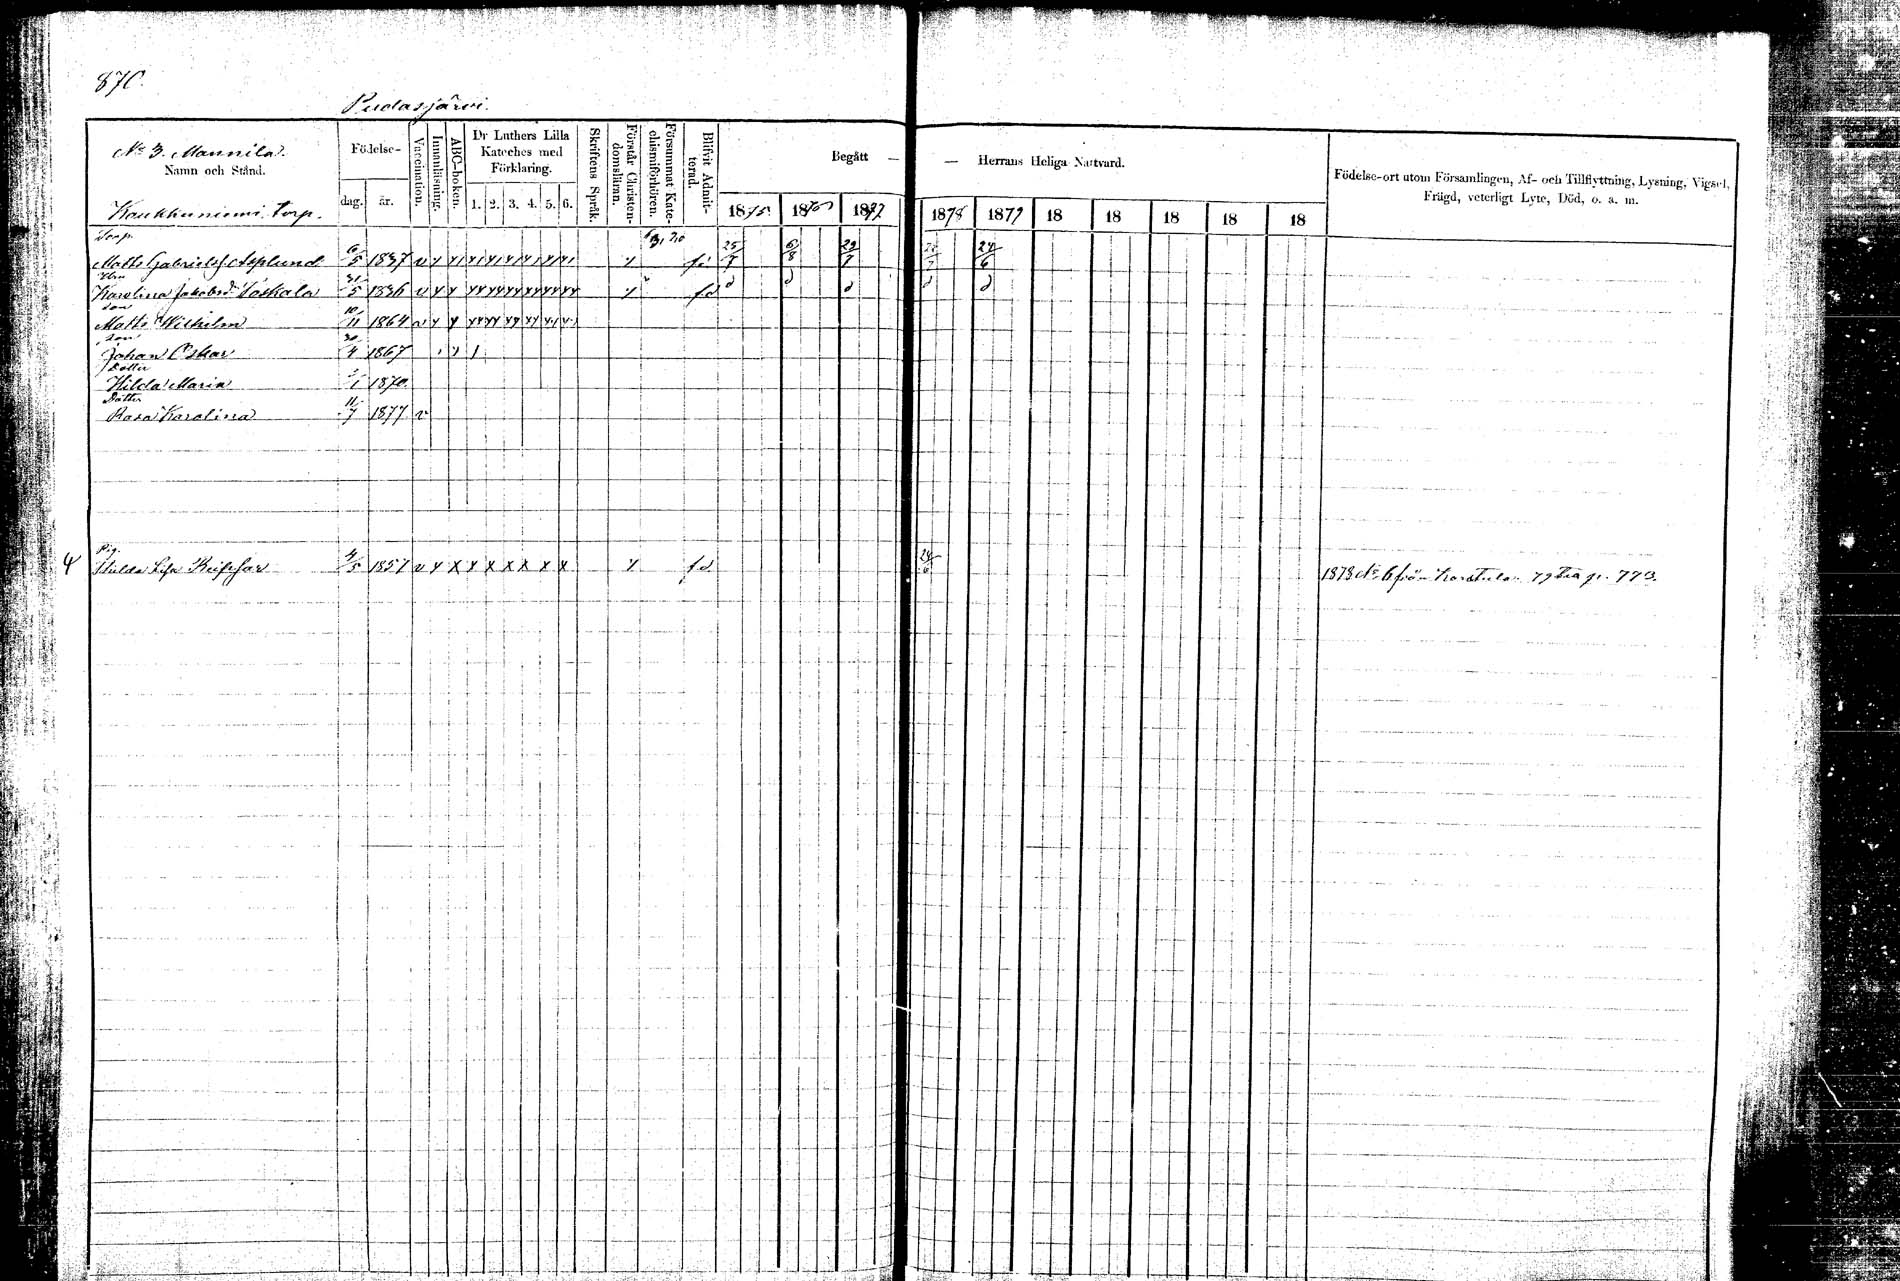 870.
Pudasjärvi.
No 3. Mannila.
Namn och Stånd.
Kaukkuniemi torp.
Födelse-
dag. år.
Vaccination.
Innanläsning.
ABC-boken.
Dr Luthers Lilla
Kateches med
Förklaring.
1. 2. 3. 4. 5. 6.
Skriftens Språk.
Förstår Christen-
domsläran.
Försummat Kate-
chismiförhören.
Blifvit Admit-
terad.
Begått — — Herrans Heliga Nattvard.
1875. 1876 1877 1878 1879 18 18 18 18 18
Födelse-ort utom Församlingen, Af- och Tillflyttning, Lysning, Vigsel,
Frägd, veterligt Lyte, Död, o. a. m.
Torp.
Matts Gabrielsf. Asplund 6/5 1837 v x x x x x x x x x 25/7 6/8 29/7 24/6
Hu
Karolina Jakobsd. 31/5 1836 v x x x x x x x x x fd d d d d d
Son
Matts Wilhelm 10/11 1864 v x x x x x x x x
Son
Johan Oskar 30/4 1867
Dotter
Hilda Maria 1870.
Dotter
Rosa Karolina 11/7 1877 v
4
Pig.
Hilda 4/5 1857 v x x x x x x x x x fd 24/6 1878 No 6 från Karstula. 79 p. 773.